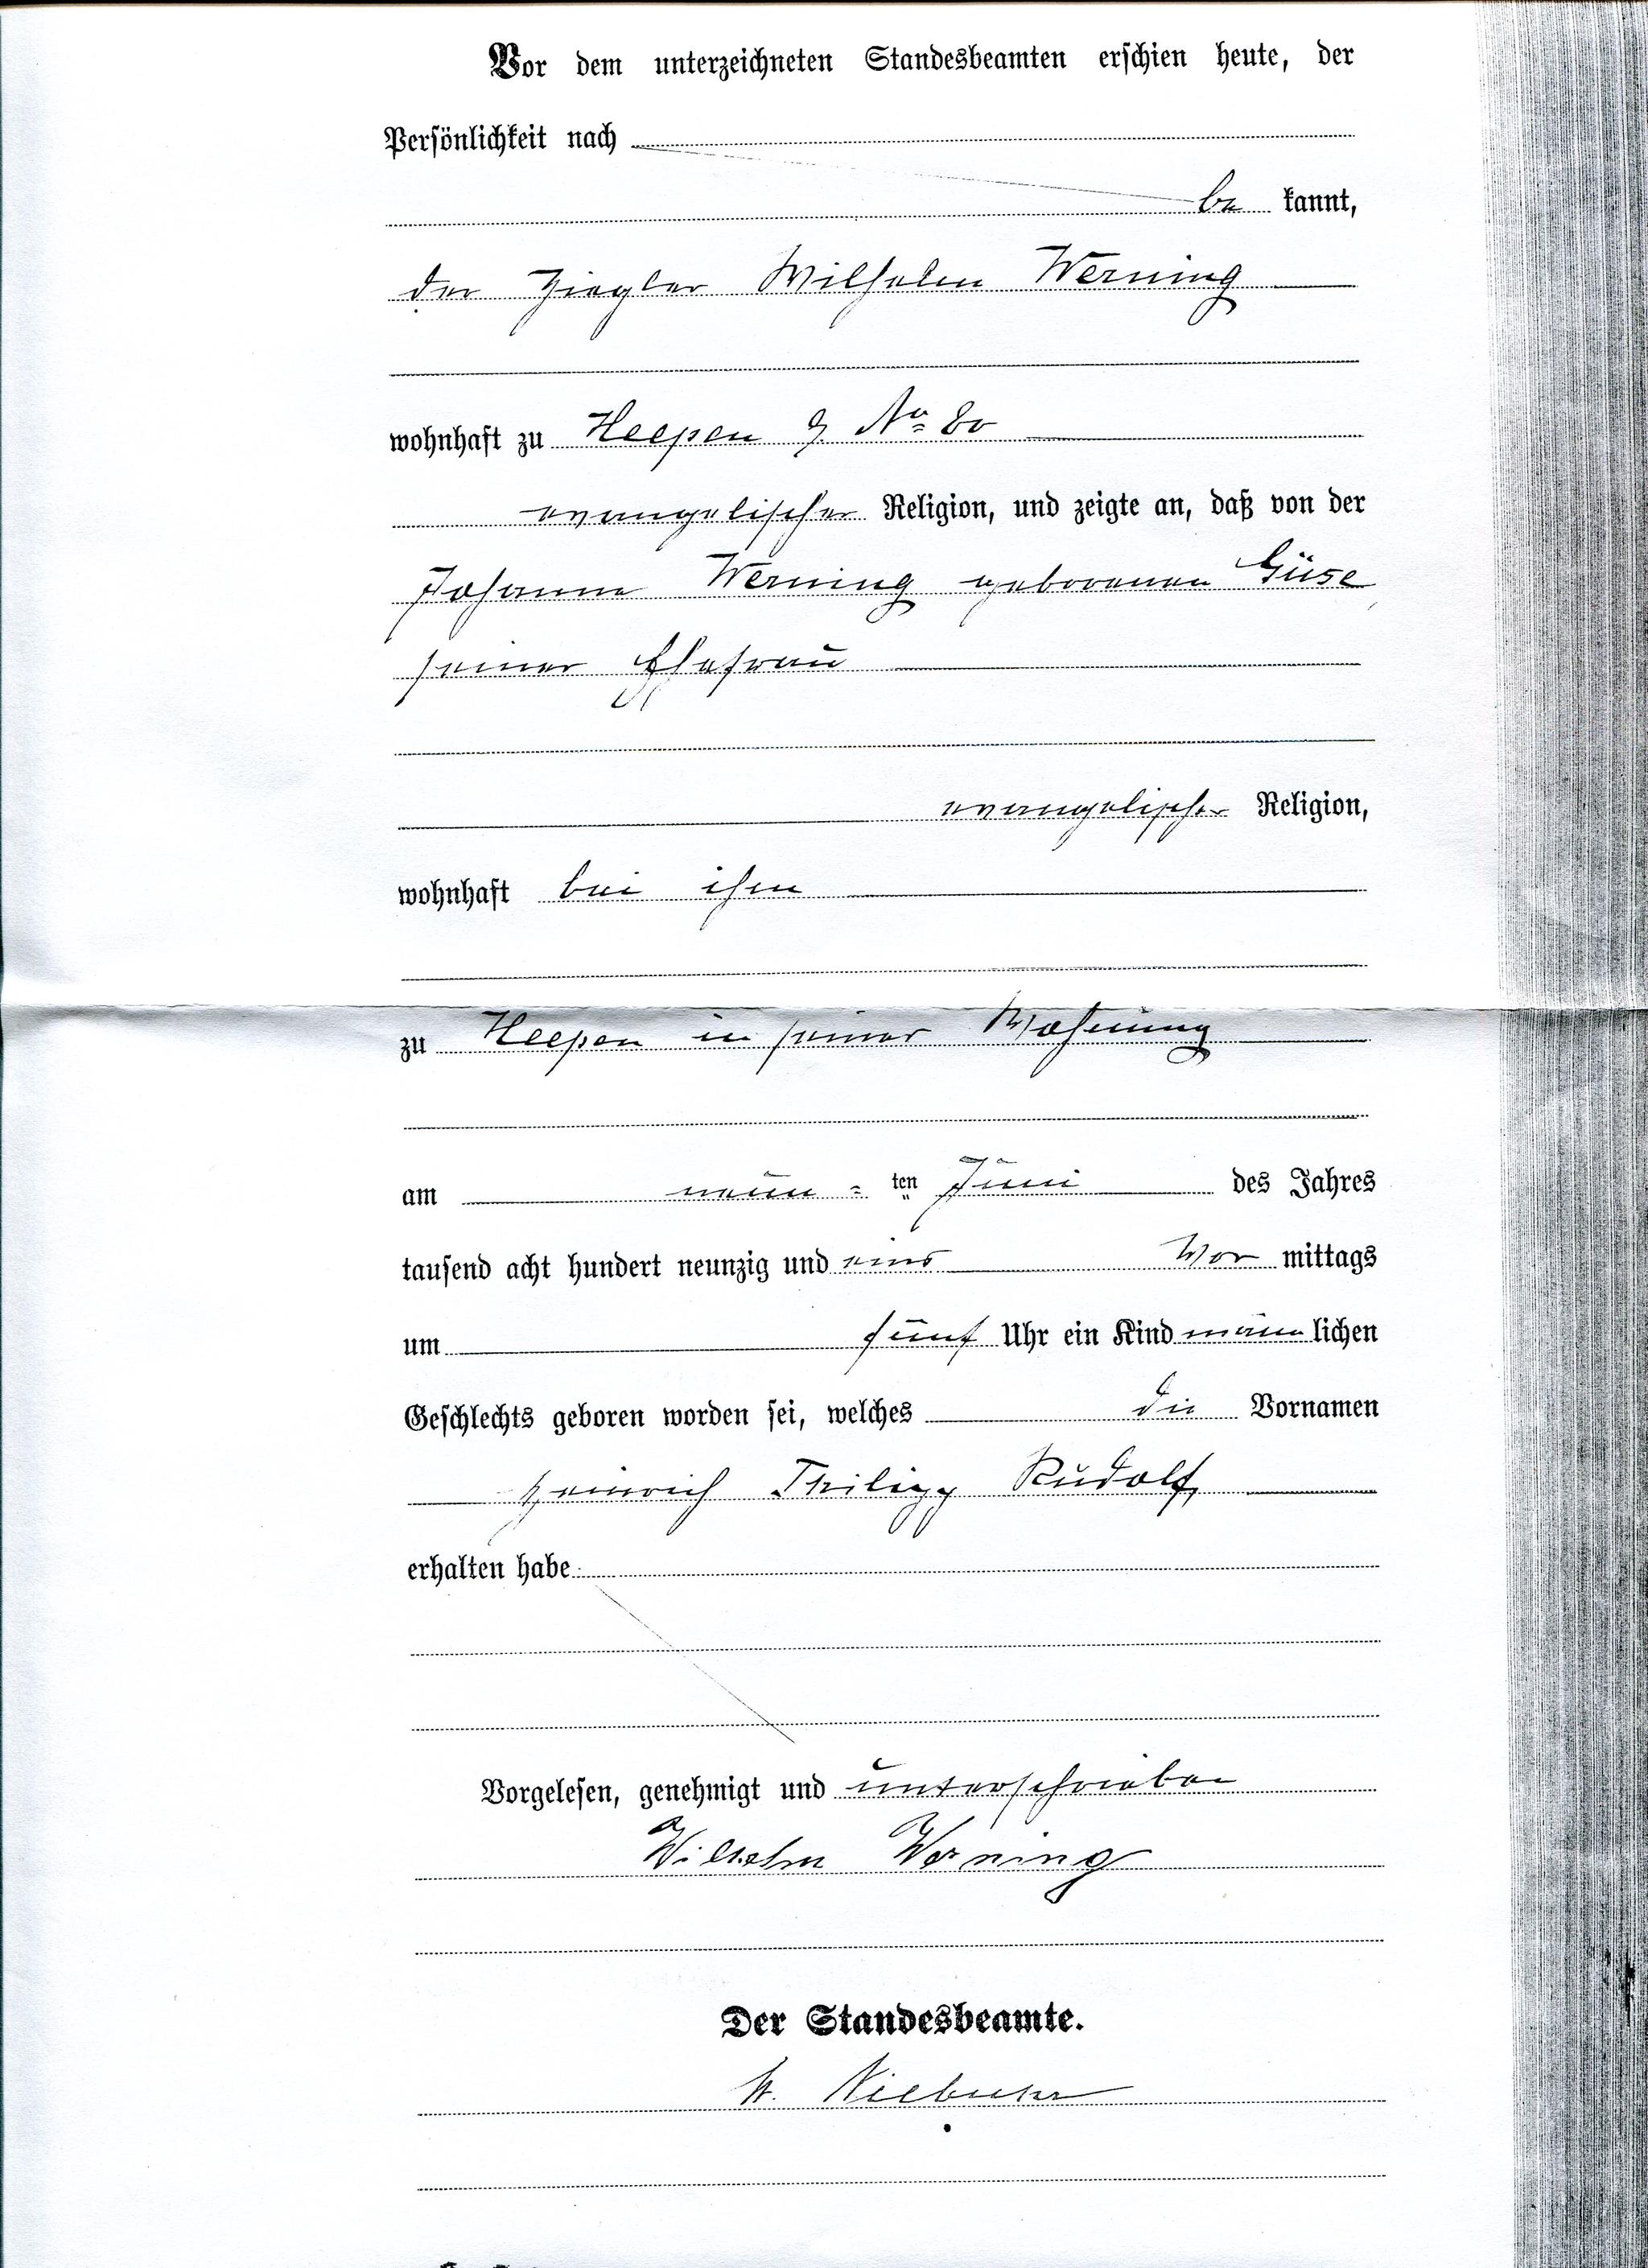 Vor dem unterzeichneten Standesbeamten erschien heute, der
Persönlichkeit nach
be kannt,
der Ziegler Wilhelm Werning
wohnhaft zu Heepen No 80
evangelischer Religion, und zeigte an, daß von der
Johanne Werning geborenen Güse
seiner Ehefrau
evangelischer Religion,
wohnhaft bei ihm
zu Heepen in seiner Wohnung
am neun = ten Juni des Jahres
tausend acht hundert neunzig und eins Vor mittags
um fünf Uhr ein Kind männ lichen
Geschlechts geboren worden sei, welches die Vornamen
Heinrich Philipp Rudolf
erhalten habe
Vorgelesen, genehmigt und unterschrieben
Wilhelm Werning
Der Standesbeamte.
Niebuhr